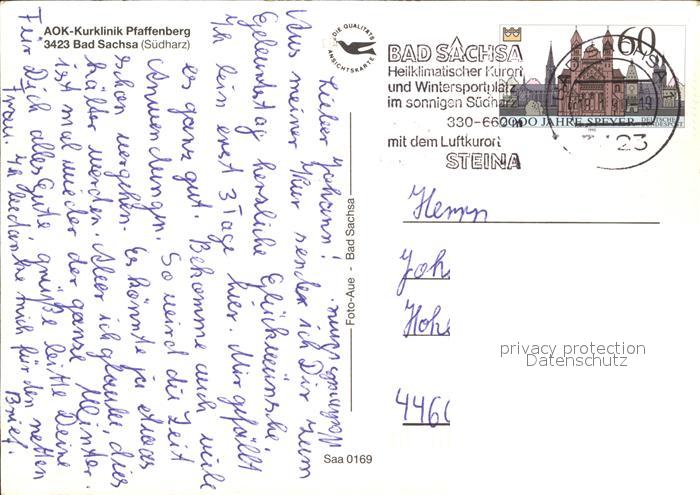 AOK-Kurklinik Pfaffenberg
3423 Bad Sachsa (Südharz)
DIE QUALITÄTS
ANSICHTSKARTE
BAD SACHSA
Heilklimatischer Kurort
und Wintersportplatz
im sonnigen Südharz
330-660 m
mit dem Luftkurort
STEINA
60
2000 JAHRE SPEYER
DEUTSCHE
BUNDESPOST
23
Lieber Johann!
Aus meiner Kur sende ich Dir zum
Geburtstag herzliche Glückwünsche.
Ich bin erst 3 Tage hier. Mir gefällt
es ganz gut. Bekomme auch viele
Anwendungen. So wird die Zeit
schon vergehen. Es könnte ja etwas
kälter werden. Aber ich glaube, dies
ist mal wieder der ganze Winter.
Für Dich alles Gute, grüße bitte Deine
Frau. Ich bedanke mich für den netten
Brief.
Foto-Aue - Bad Sachsa
Saa 0169
Herrn
Joh
Hoh
446
privacy protection
Datenschutz